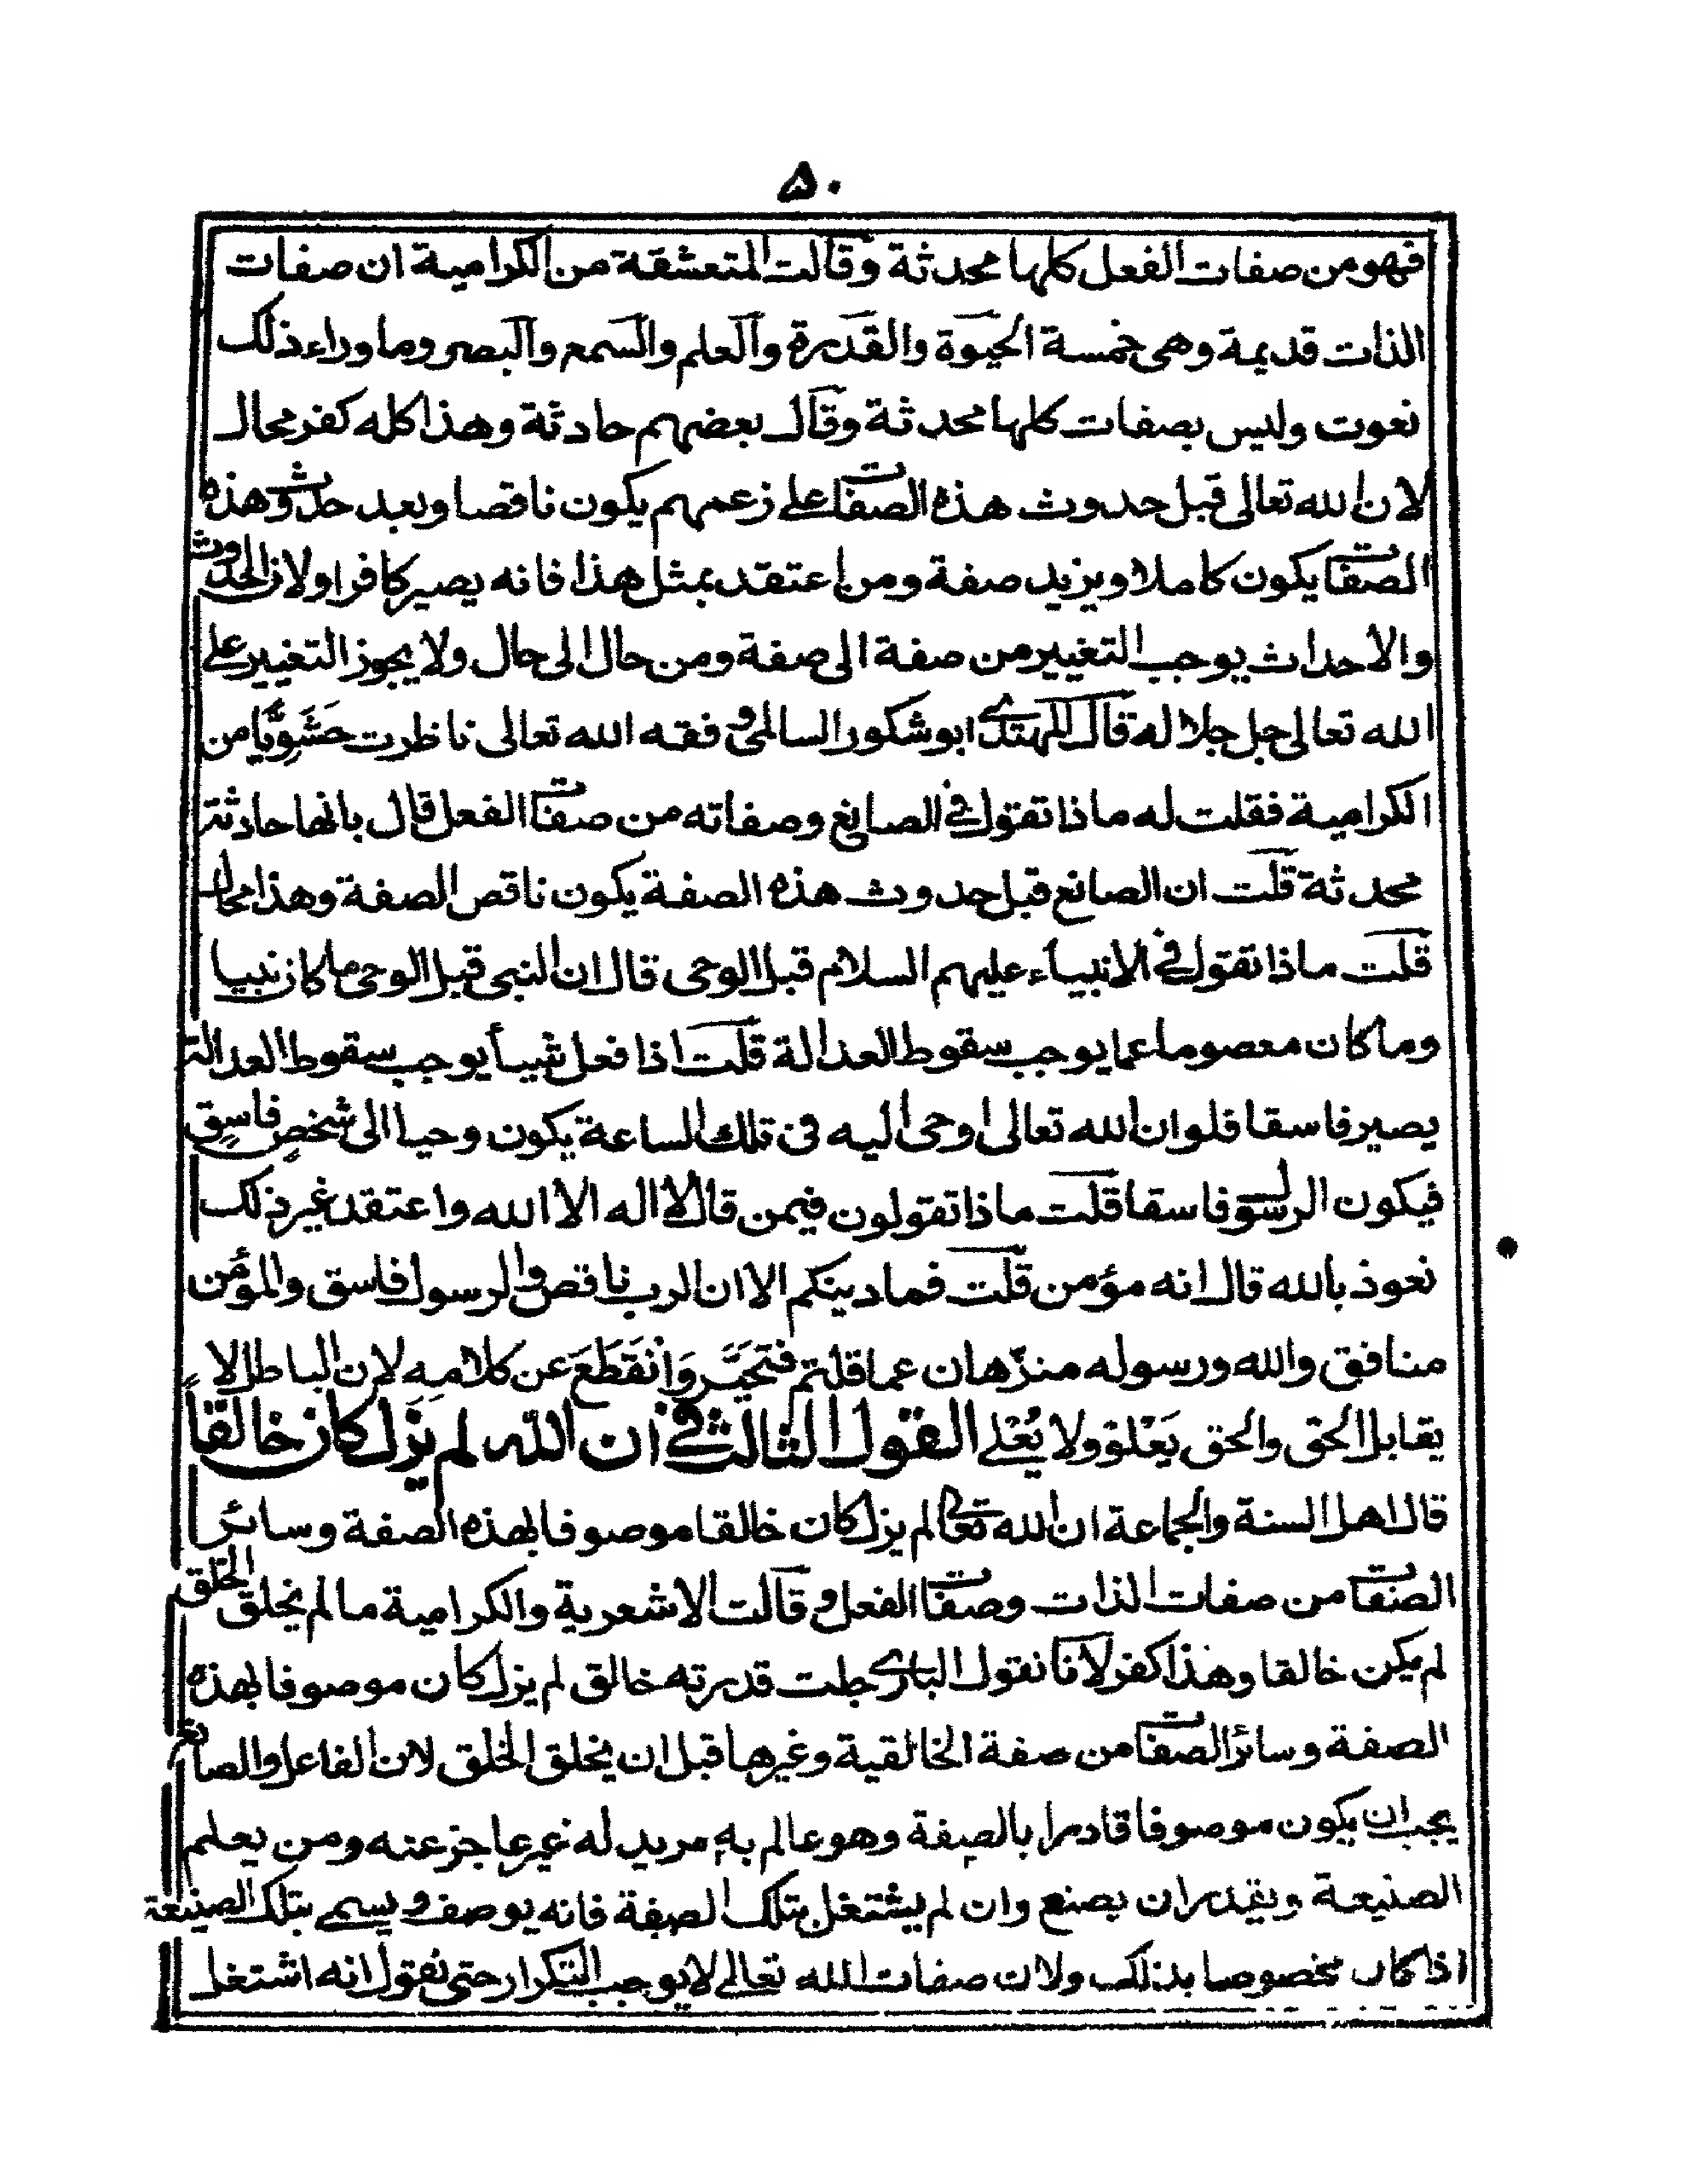 ٥٠
فهو من صفات الفعل كلها محدثة وقالت المتعشقة من الكرامية ان صفات
الذات قديمة وهى خمسة الحيوة والقدرة والعلم والسمع والبصر وما وراء ذلك
نعوت وليس بصفات كلها محدثة وقال بعضهم حادثة وهذا كله كفر محال
لان الله تعالى قبل حدوث هذه الصفات على زعمهم يكون ناقصا وبعد حدوث هذه
الصفات يكون كاملا ويزيد صفة ومن اعتقد بمثل هذا فانه يصير كافرا ولان الحدوث
والاحداث يوجب التغيير من صفة الى صفة ومن حال الى حال ولا يجوز التغيير على
الله تعالى جل جلاله قال المهتدى ابو شكور السالمى وفقه الله تعالى ناظرت حَشَوِيًّا من
الكرامية فقلت له ماذا تقول فى الصانع وصفاته من صفات الفعل قال بانها حادثة
محدثة قلت ان الصانع قبل حدوث هذه الصفة يكون ناقص الصفة وهذا محال
قلت ماذا تقول فى الانبياء عليهم السلام قبل الوحى قال ان النبى قبل الوحى ما كان نبيا
وما كان معصوما عما يوجب سقوط العدالة قلت اذا فعل شيأ يوجب سقوط العدالة
يصير فاسقا فلو ان الله تعالى اوحى اليه فى تلك الساعة يكون وحيا الى شخصٍ فاسقٍ
فيكون الرسول فاسقا قلت ماذا تقولون فيمن قال لا اله الا الله واعتقد غير ذلك
نعوذ بالله قال انه مؤمن قلت فما دينكم الا ان الرب ناقص والرسول فاسق والمؤمن
منافق والله ورسوله منزّهان عما قلتم فتحَيَّر وَانْقَطَعَ عن كلامِه لان الباطل لا
يقابل الحق والحق يَعْلوْ ولا يُعْلى القول الثالث فى ان الله لم يزل كان خالقاً
قال اهل السنة والجماعة ان الله تعالى لم يزل كان خالقا موصوفا بهذه الصفة وسائر
الصفات من صفات الذات وصفات الفعل وقالت الاشعرية والكرامية ما لم يخلق الخلق
لم يكن خالقا وهذا كفر لانا نقول البارى جلت قدرته خالق لم يزل كان موصوفا بهذه
الصفة وسائر الصفات من صفة الخالقية وغيرها قبل ان يخلق الخلق لان الفاعل والصانع
يجب ان يكون موصوفا قادرا بالصفة وهو عالم به مريد له غير عاجز عنه ومن يعلم
الصنيعة ويقدر ان يصنع وان لم يشتغل بتلك الصفة فانه يوصف ويسمى بتلك الصنيعة
اذا كان مخصوصا بذلك ولان صفات الله تعالى لا يوجب التكرار حتى نقول انه اشتغل